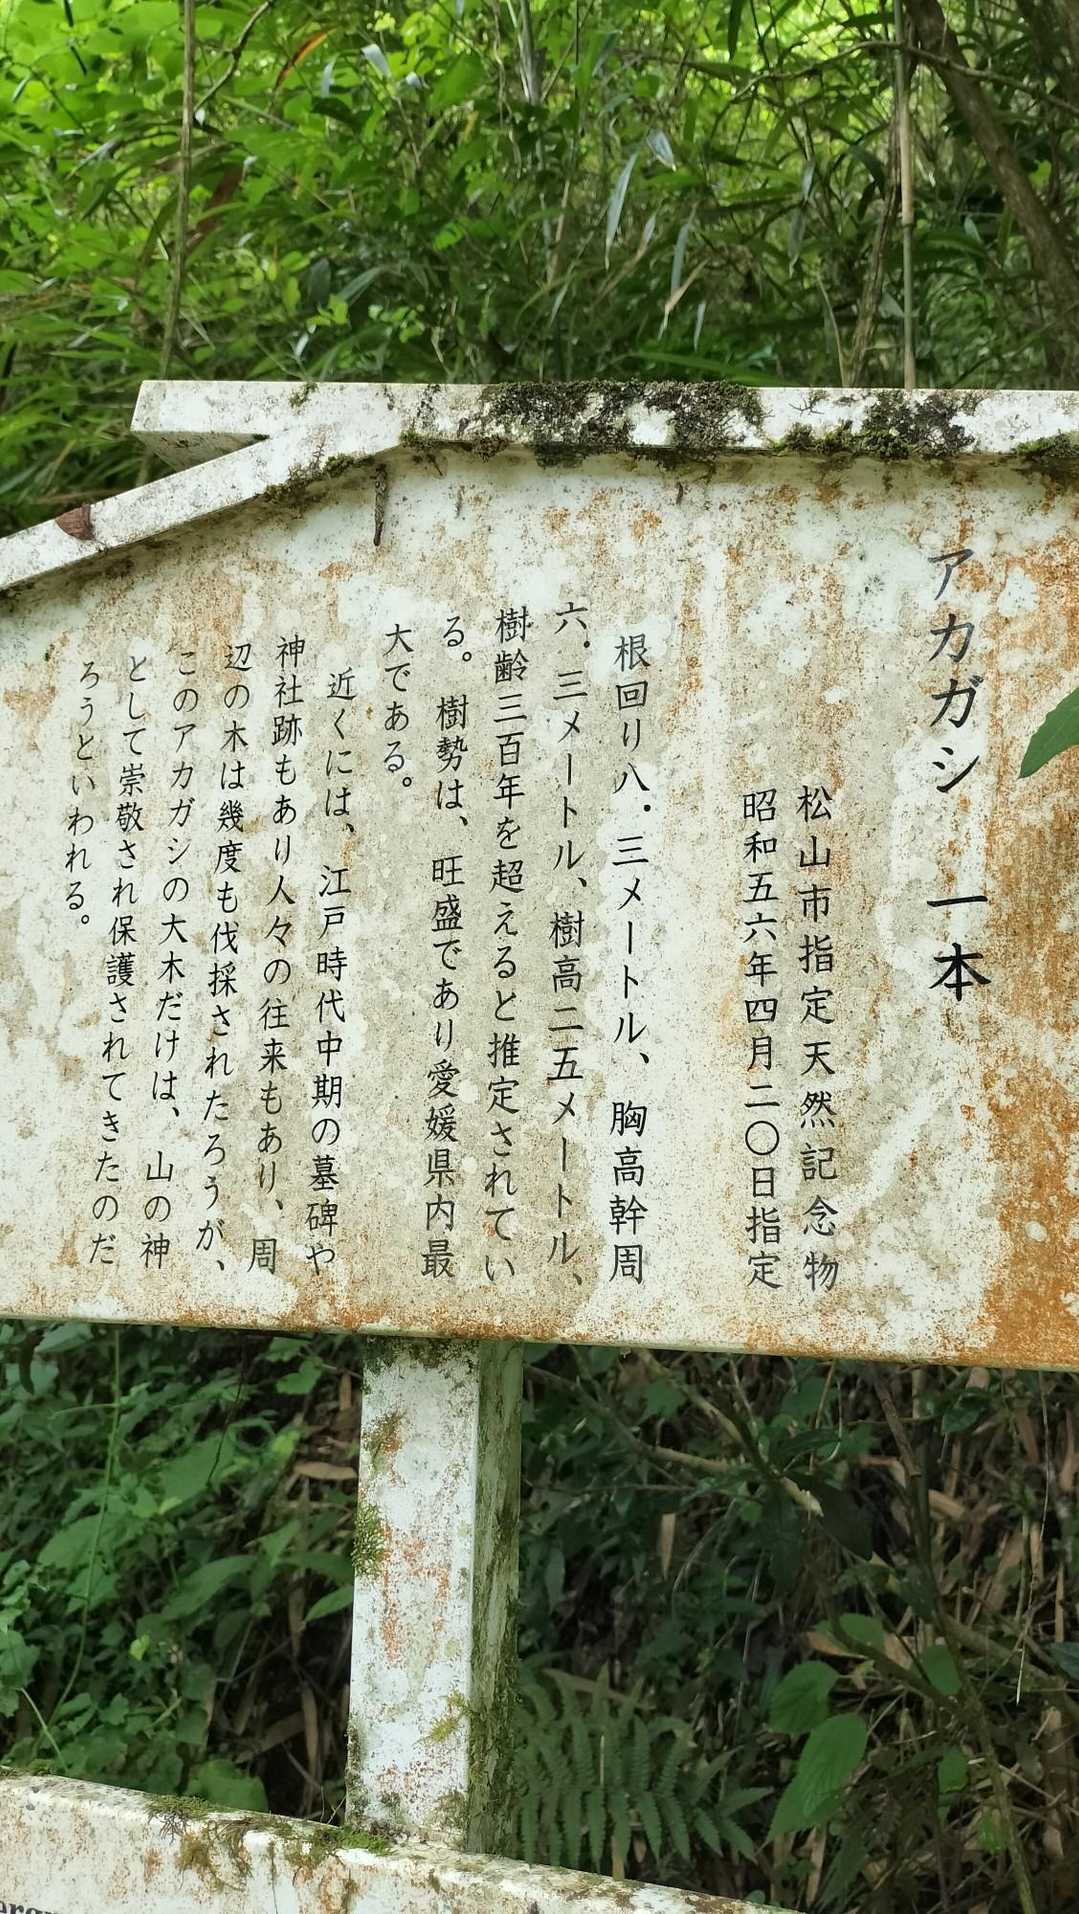 アカガシ 一本
松山市指定天然記念物
昭和五六年四月二〇日指定
根回り八・三メートル、胸高幹周
六・三メートル、樹高二五メートル、
樹齢三百年を超えると推定されてい
る。樹勢は、旺盛であり愛媛県内最
大である。
近くには、江戸時代中期の墓碑や
神社跡もあり人々の往来もあり、周
辺の木は幾度も伐採されたろうが、
このアカガシの大木だけは、山の神
として崇敬され保護されてきたのだ
ろうといわれる。